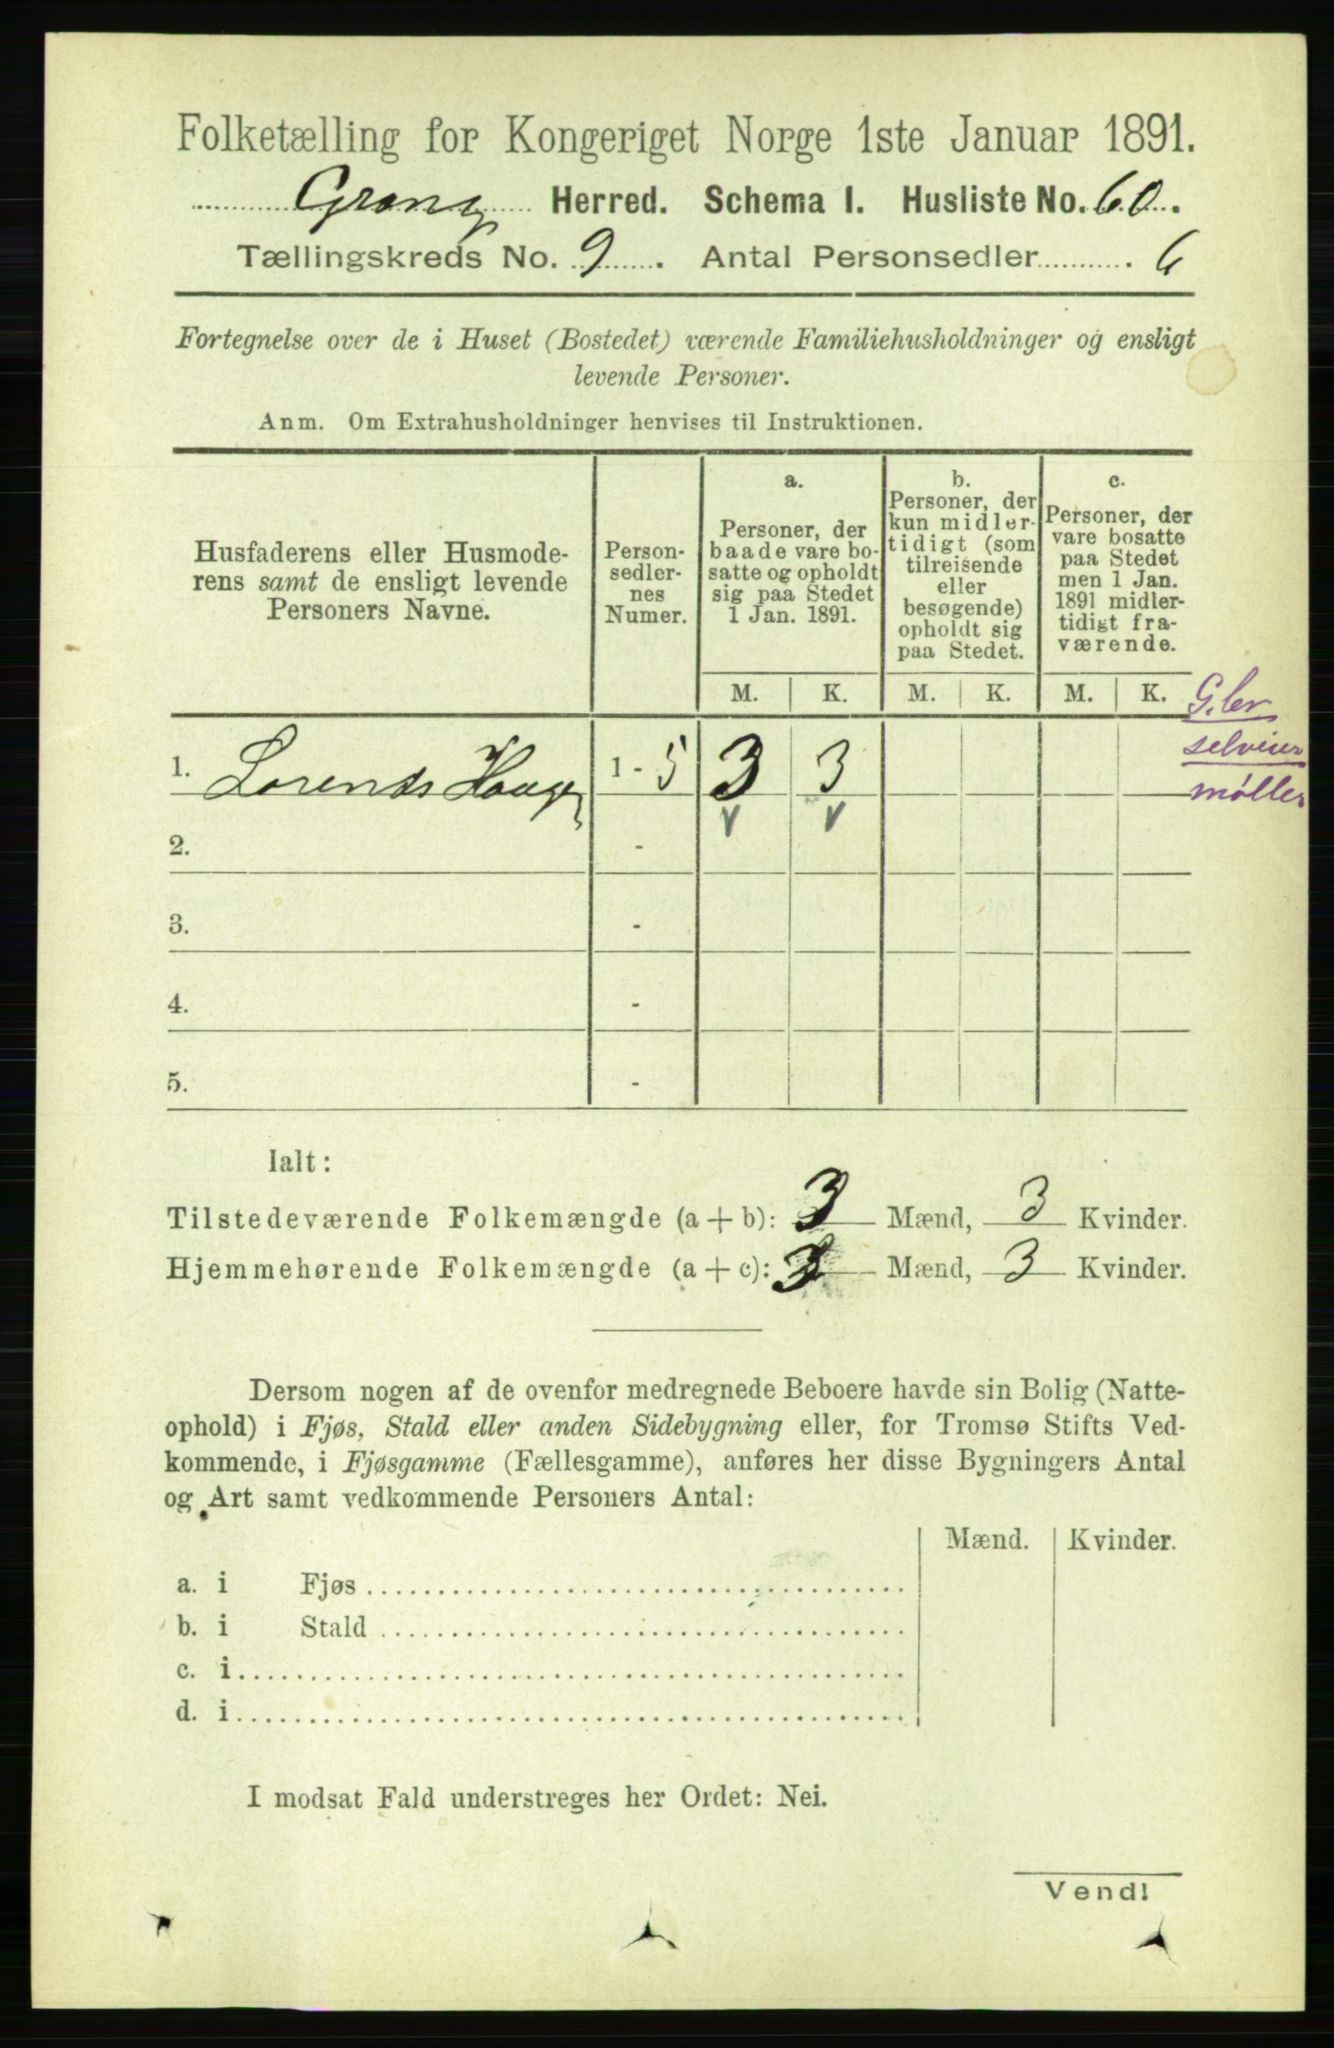 Folketælling for Kongeriget Norge 1ste Januar 1891.
Grong Herred. Schema I. Husliste No. 60.
Tællingskreds No. 9. Antal Personsedler 6
Fortegnelse over de i Huset (Bostedet) værende Familiehusholdninger og ensligt
levende Personer.
Anm. Om Extrahusholdninger henvises til Instruktionen.
Husfaderens eller Husmode-
rens samt de ensligt levende
Personers Navne.
Person-
sedler-
nes
Numer.
a.
Personer, der
baade vare bo-
satte og opholdt
sig paa Stedet
1 Jan. 1891.
b.
Personer, der
kun midler-
tidigt (som
tilreisende
eller
besøgende)
opholdt sig
paa Stedet.
c.
Personer, der
vare bosatte
paa Stedet
men 1 Jan.
1891 midler-
tidigt fra-
værende.
M. K. M. K. M. K.
G.br
selveier
møller
1. Lorents Hauge 1 - 5 3 3
2. -
3. -
4. -
5. -
Ialt:
Tilstedeværende Folkemængde (a + b): 3 Mænd, 3 Kvinder.
Hjemmehørende Folkemængde (a + c): 3 Mænd, 3 Kvinder.
Dersom nogen af de ovenfor medregnede Beboere havde sin Bolig (Natte-
ophold) i Fjøs, Stald eller anden Sidebygning eller, for Tromsø Stifts Ved-
kommende, i Fjøsgamme (Fællesgamme), anføres her disse Bygningers Antal
og Art samt vedkommende Personers Antal:
Mænd. Kvinder.
a. i Fjøs
b. i Stald
c. i
d. i
I modsat Fald understreges her Ordet: Nei.
Vend!